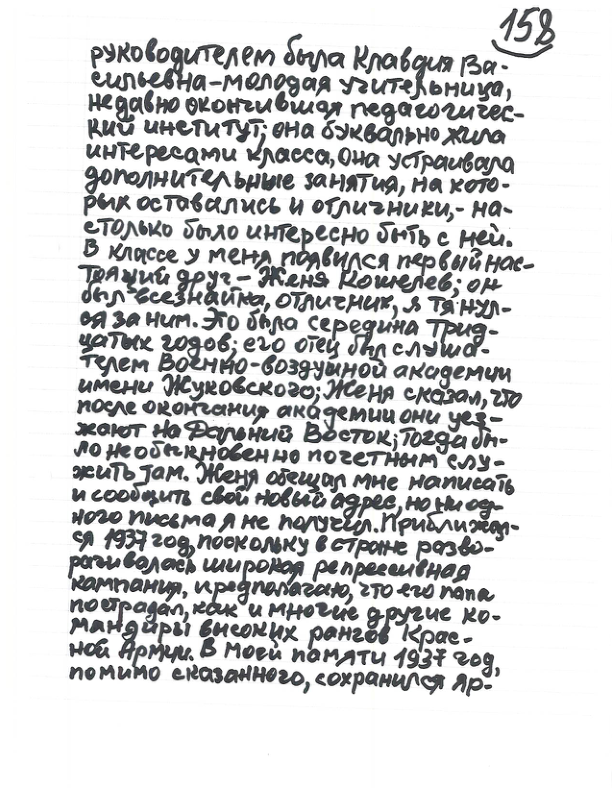 158
руководителем была Клавдия Ва-
сильевна-молодая учительница,
недавно окончившая педагогичес-
кий институт; она буквально жила
интересами класса, она устраивала
дополнительные занятия, на кото-
рых оставались и отличники,- на-
столько было интересно быть с ней.
В классе у меня появился первый нас-
тоящий друг - Женя Кошелев; он
был всезнайка, отличник, я тянул-
ся за ним. Это была середина трид-
цатых годов; его отец был слуша-
телем Военно-воздушной академии
имени Жуковского; Женя сказал, что
после окончания академии они уез-
жают на Дальний Восток; тогда бы-
ло необыкновенно почетным слу-
жить там. Женя обещал мне написать
и сообщить свой новый адрес, но ни од-
ного письма я не получил. Приближал-
ся 1937 год, поскольку в стране разво-
рачивалась широкая репрессивная
кампания, предполагаю, что его папа
пострадал, как и многие другие ко-
мандиры высоких рангов Крас-
ной Армии. В моей памяти 1937 год,
помимо сказанного, сохранился яр-